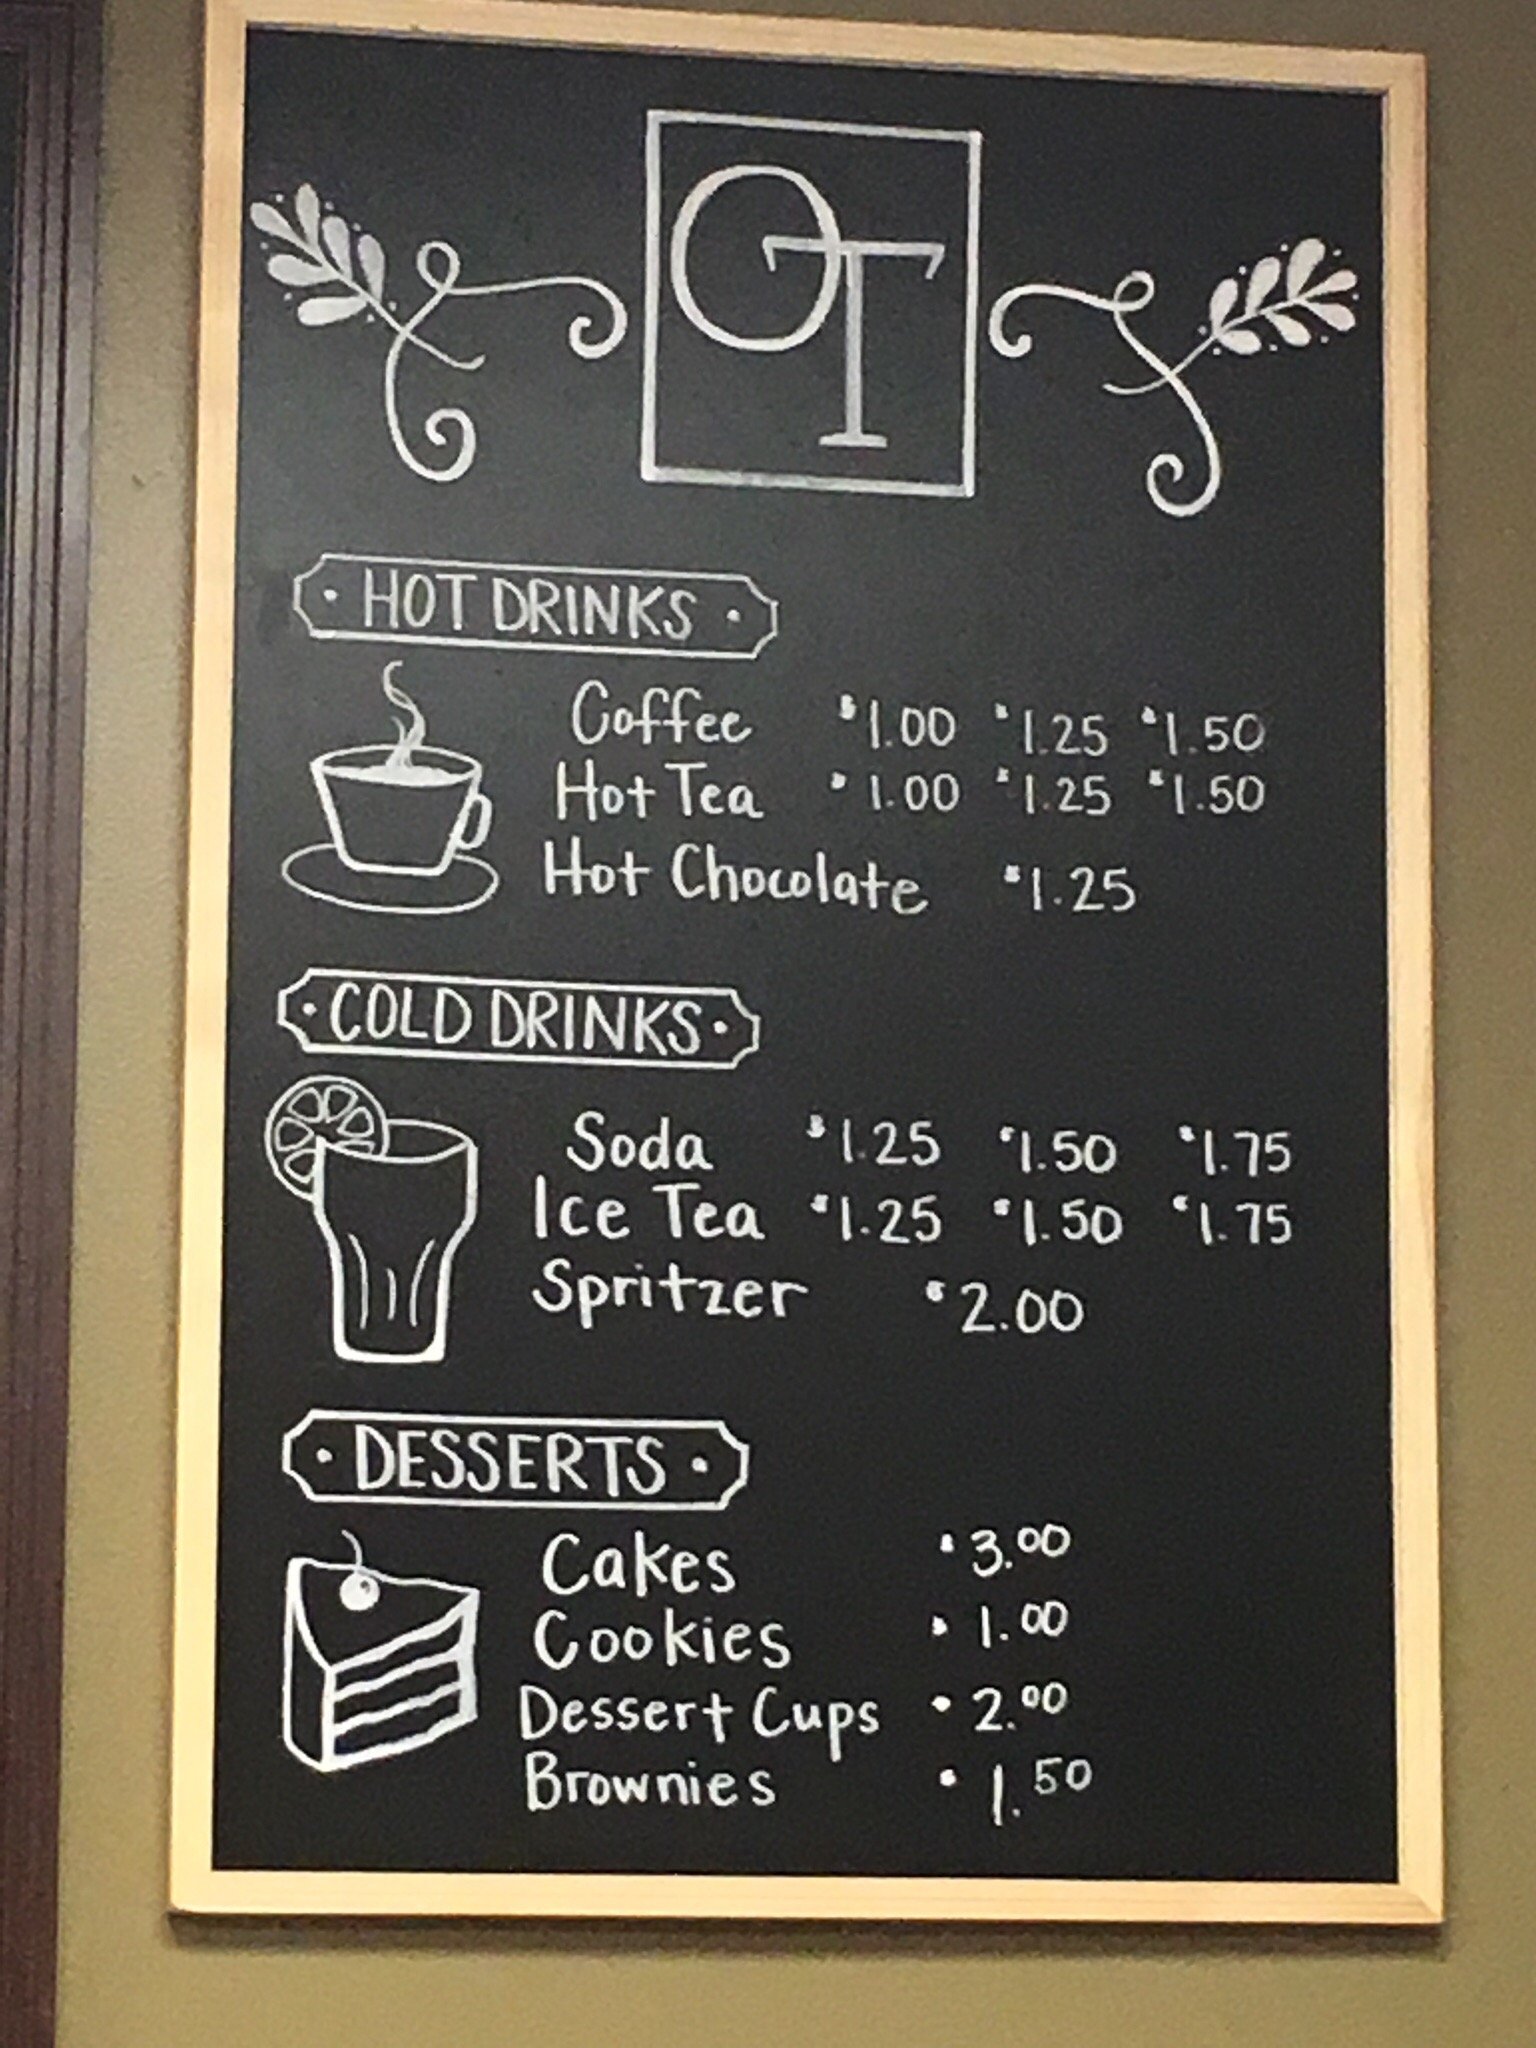 OT
HOT DRINKS
Coffee $1.00 $1.25 $1.50
Hot Tea $1.00 $1.25 $1.50
Hot Chocolate $1.25
COLD DRINKS
Soda $1.25 $1.50 $1.75
Ice Tea $1.25 $1.50 $1.75
Spritzer $2.00
DESSERTS
Cakes $3.00
Cookies $1.00
Dessert Cups $2.00
Brownies $1.50